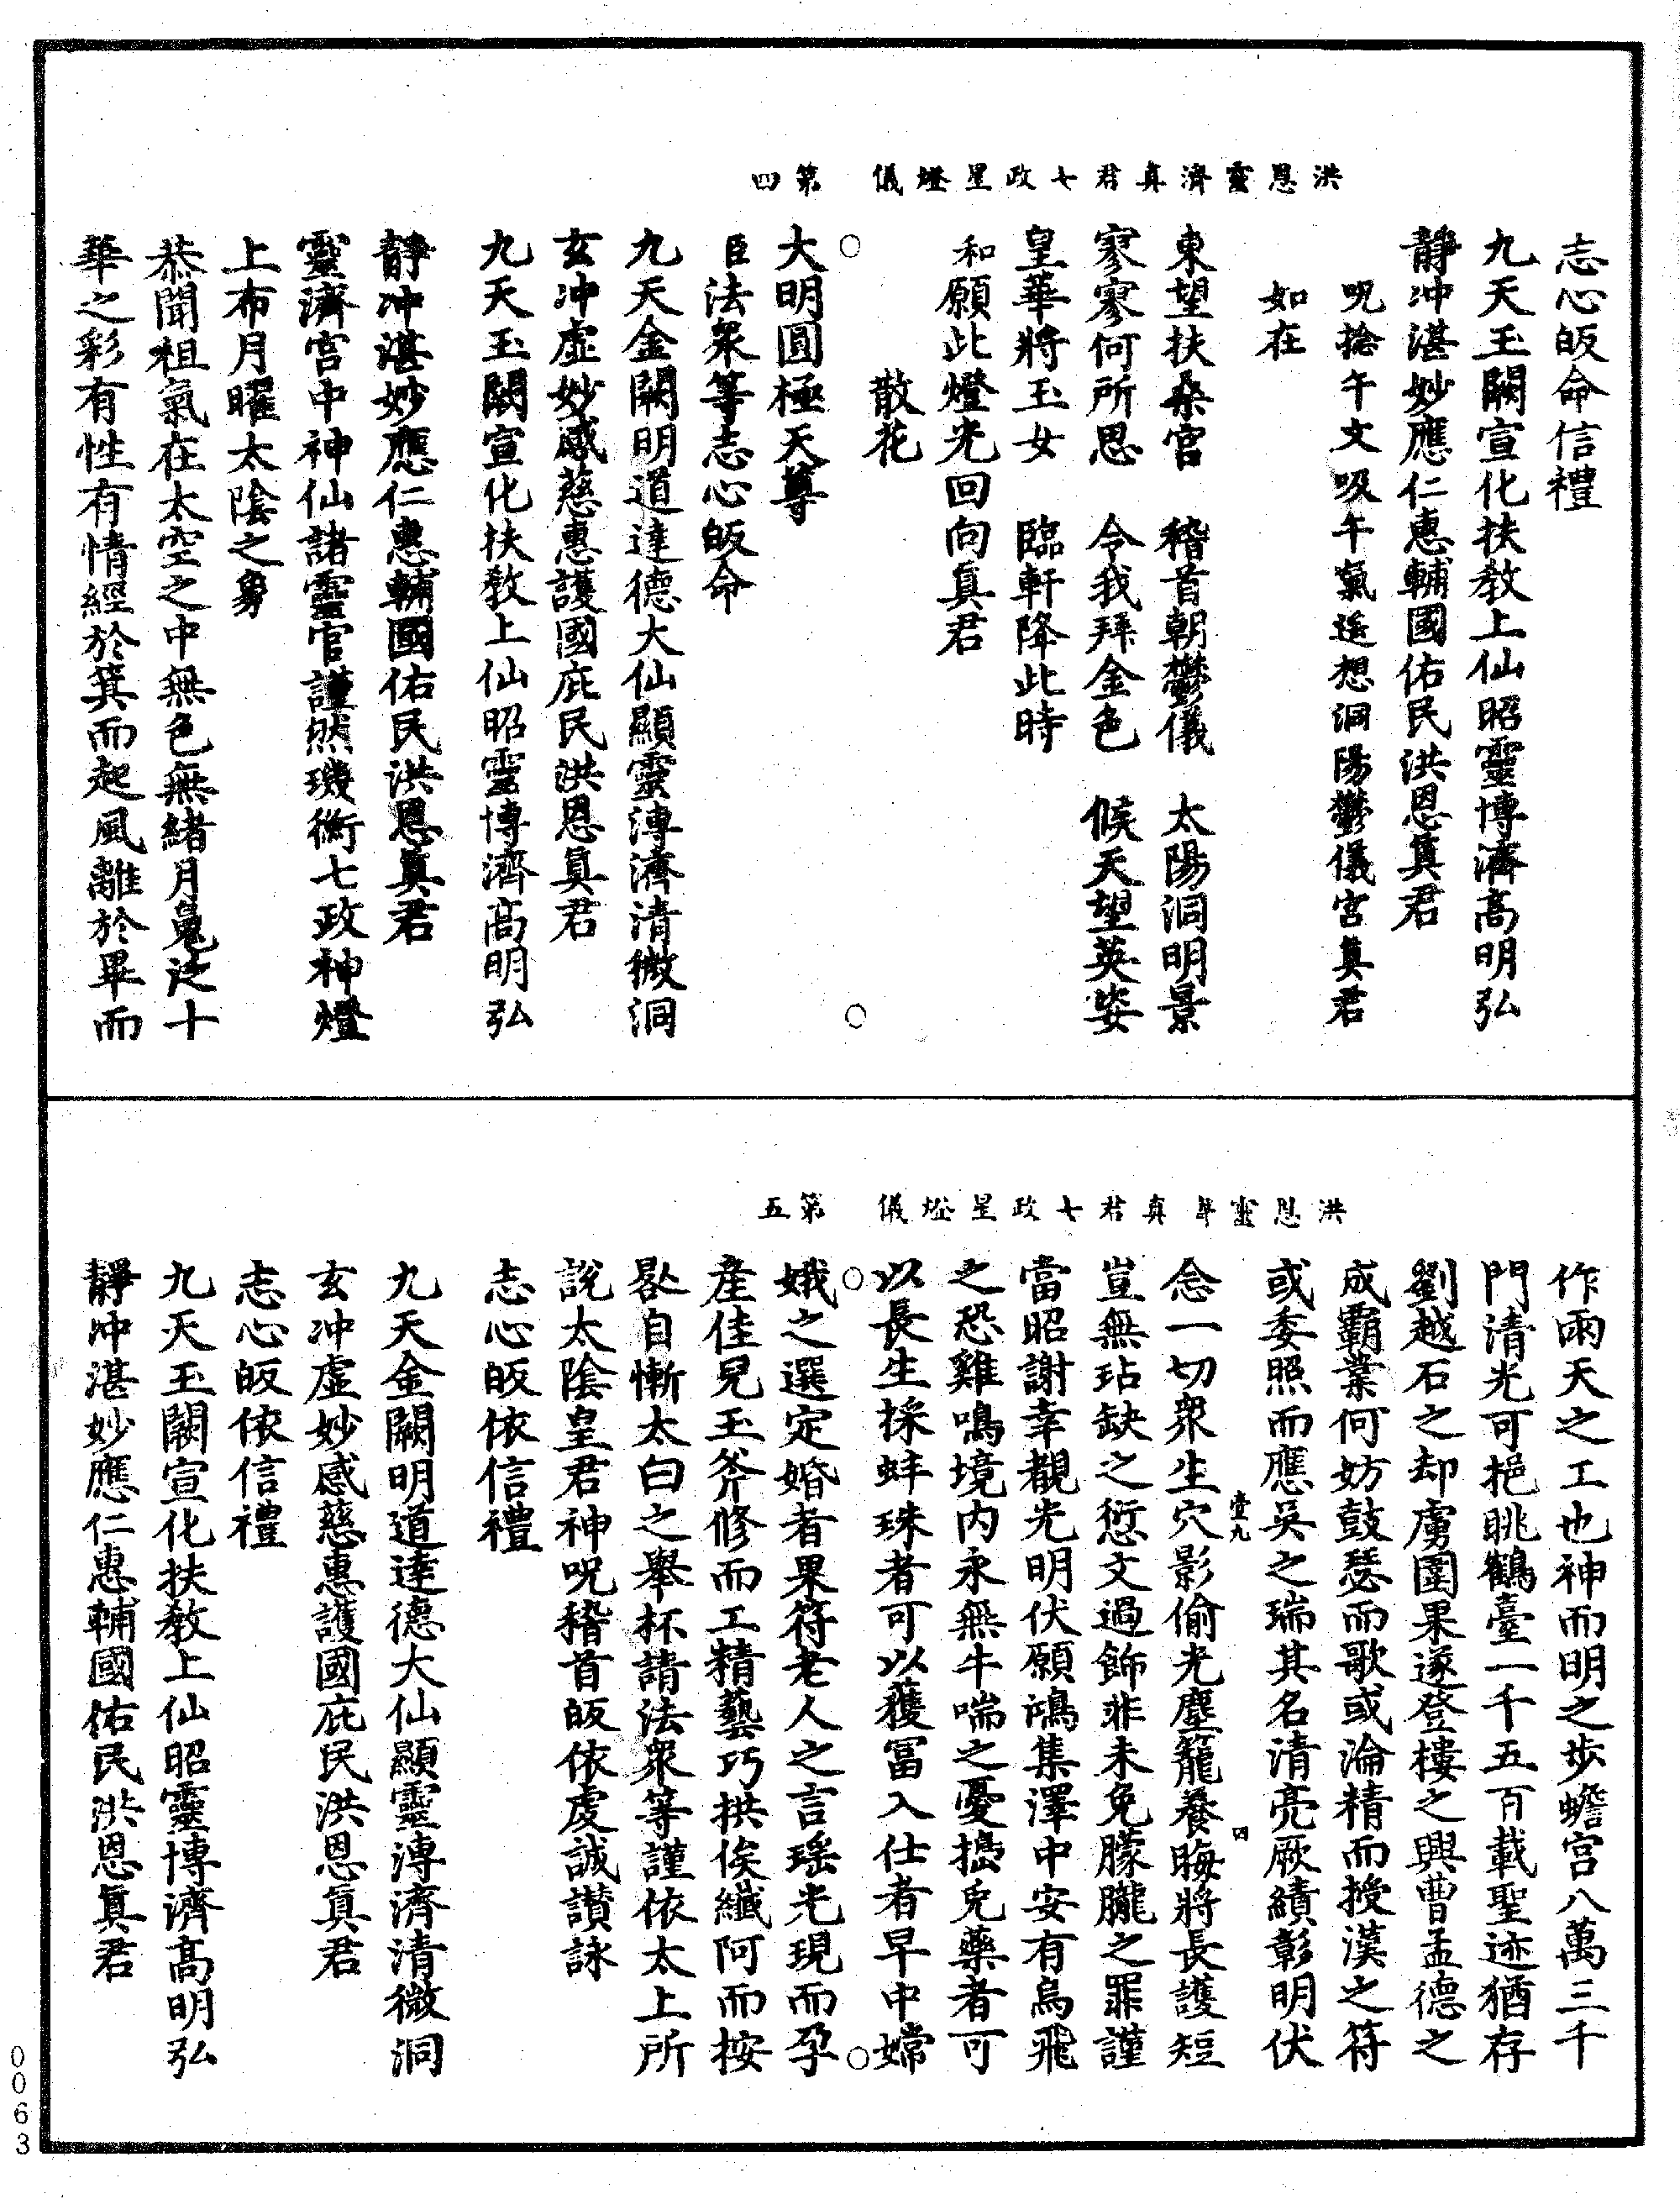 洪恩靈濟真君七政星燈儀　第四
志心皈命信禮
九天玉闕宣化扶教上仙昭靈博濟高明弘
靜冲湛妙應仁惠輔國佑民洪恩真君
呪捻午文吸午氣遥想洞陽鬱儀宮真君
如在
東望扶桑宮　稽首朝鬱儀　太陽洞明景
寥寥何所思　令我拜金色　候天望英姿
皇華將玉女　臨軒降此時
和願此燈光回向真君
散花
大明圓極天尊
臣法衆等志心皈命
九天金闕明道達德大仙顯靈溥濟清微洞
玄冲虛妙感慈惠護國庇民洪恩真君
九天玉闕宣化扶教上仙昭靈博濟高明弘
靜冲湛妙應仁惠輔國佑民洪恩真君
靈濟宮中神仙諸靈官謹然璣衡七政神燈
上布月曜太陰之象
恭聞祖氣在太空之中無色無緒月鬼泛十
華之彩有性有情經於箕而起風離於畢而
洪恩靈濟真君七政星燈儀　第五
作雨天之工也神而明之步蟾宮八萬三千
門清光可挹眺鶴臺一千五百載聖迹猶存
劉越石之却虜圍果遂登樓之興曹孟德之
成霸業何妨鼓瑟而歌或淪精而授漢之符
或委照而應吳之瑞其名清亮厥績彰明伏
壹九　四
念一切衆生穴影偷光塵籠養晦將長護短
豈無玷缺之愆文過飾非未免朦朧之罪謹
當昭謝幸覩光明伏願鴻集澤中安有烏飛
之恐雞鳴境内永無牛喘之憂擣兎藥者可
以長生採蚌珠者可以獲冨入仕者早中嫦
娥之選定婚者果符老人之言瑶光現而孕
產佳兒玉斧修而工精藝巧拱俟纎阿而按
晷自慚太白之舉杯請法衆等謹依太上所
說太陰皇君神呪稽首皈依虔誠讃詠
志心皈依信禮
九天金闕明道達德大仙顯靈溥濟清微洞
玄冲虛妙感慈惠護國庇民洪恩真君
志心皈依信禮
九天玉闕宣化扶教上仙昭靈博濟高明弘
靜冲湛妙應仁惠輔國佑民洪恩真君
0063